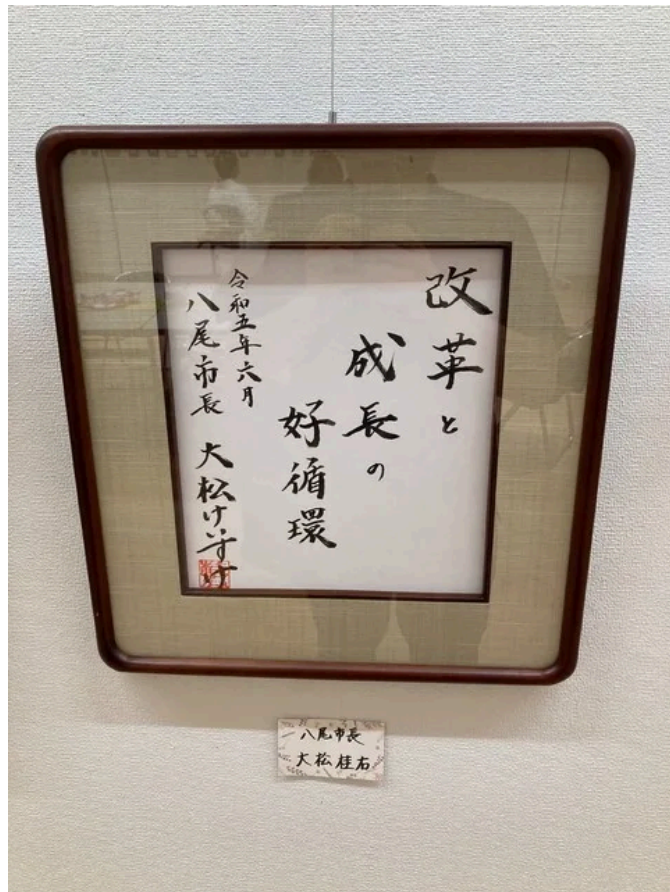 改革と
成長の
好循環
令和五年六月
八尾市長 大松けいすけ
八尾市長
大松桂右